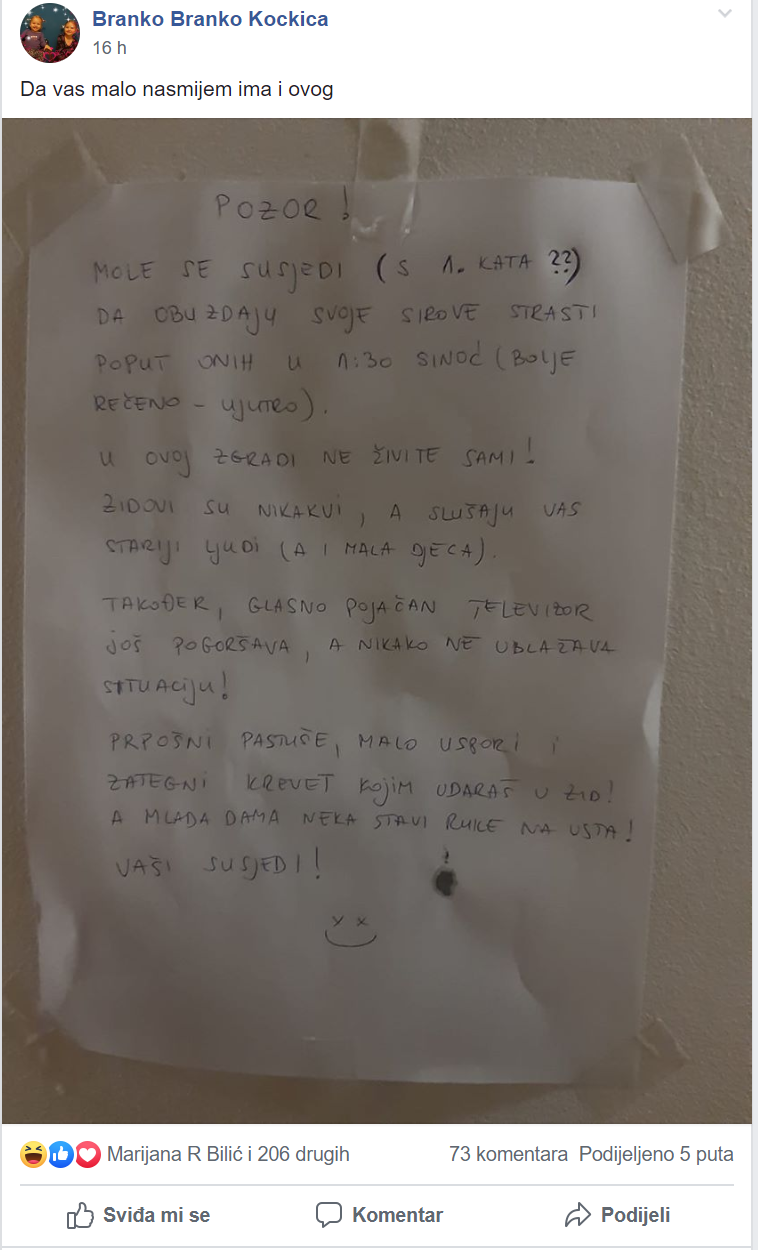 Branko Branko Kockica
16 h
Da vas malo nasmijem ima i ovog
POZOR!
MOLE SE SUSJEDI (S 1. KATA ??)
DA OBUZDAJU SVOJE SIROVE STRASTI
POPUT ONIH U 1:30 SINOĆ (BOLJE
REČENO - UJUTRO).
U OVOJ ZGRADI NE ŽIVITE SAMI!
ZIDOVI SU NIKAKVI, A SLUŠAJU VAS
STARIJI LJUDI (A I MALA DJECA).
TAKOĐER, GLASNO POJAČAN TELEVIZOR
JOŠ POGORŠAVA, A NIKAKO NE UBLAŽAVA
SITUACIJU!
PRPOŠNI PASTUŠE, MALO USPORI I
ZATEGNI KREVET KOJIM UDARAŠ U ZID!
A MLADA DAMA NEKA STAVI RUKE NA USTA!
VAŠI SUSJEDI!
Marijana R Bilić i 206 drugih 73 komentara Podijeljeno 5 puta
Sviđa mi se Komentar Podijeli